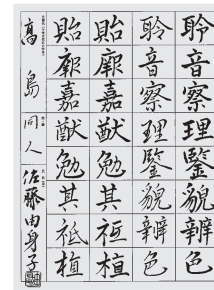 聆音察理鑒貌辨色
聆音察理鑒貌辨色
貽厥嘉猷勉其祗植
貽厥嘉猷勉其祗植
高島 同人 佐藤由身子